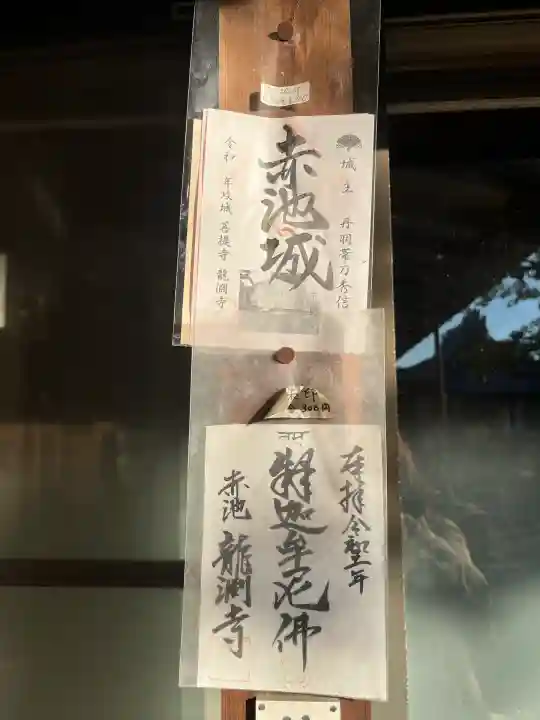 城主 丹羽帯刀秀信
赤池城
令和 年 登城 菩提寺 龍渕寺
朱印
300円
奉拝 令和 年
釋迦牟尼佛
赤池 龍渕寺